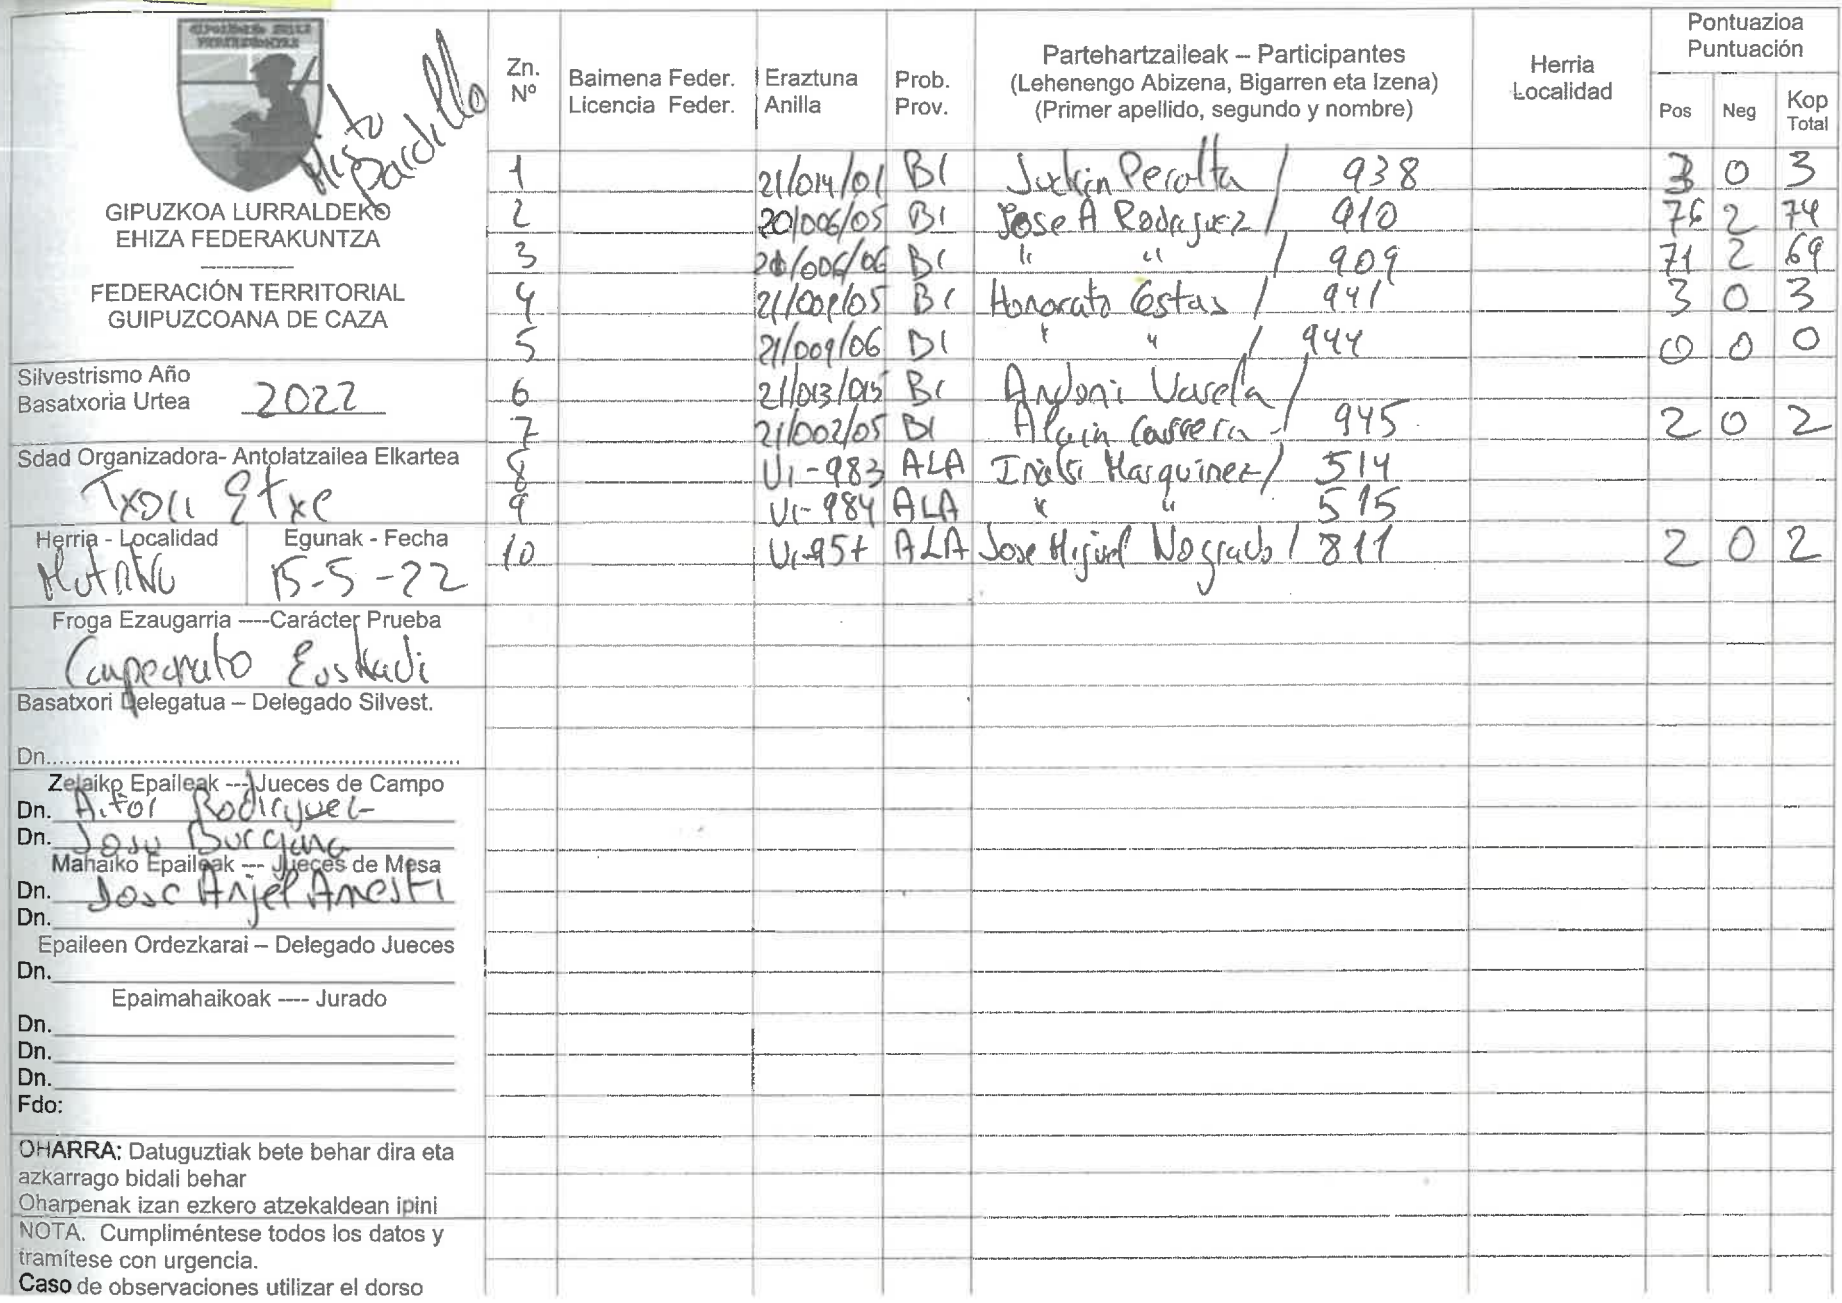 GIPUZKOA EHIZA
FEDERAKUNTZA
Mixto
Pardillo
GIPUZKOA LURRALDEKO
EHIZA FEDERAKUNTZA
FEDERACIÓN TERRITORIAL
GUIPUZCOANA DE CAZA
Silvestrismo Año
Basatxoria Urtea 2022
Sdad Organizadora- Antolatzailea Elkartea
Txori Etxe
Herria - Localidad Egunak - Fecha
15-5-22
Froga Ezaugarria ----Carácter Prueba
Campeonato Euskadi
Basatxori Delegatua – Delegado Silvest.
Dn.
Zelaiko Epaileak ---Jueces de Campo
Dn. Aitor Rodriguez
Dn. Josu Burgana
Mahaiko Epaileak --- Jueces de Mesa
Dn. Jose Anjel Amesti
Dn.
Epaileen Ordezkarai – Delegado Jueces
Dn.
Epaimahaikoak ---- Jurado
Dn.
Dn.
Dn.
Fdo:
OHARRA: Datuguztiak bete behar dira eta
azkarrago bidali behar
Oharpenak izan ezkero atzekaldean ipini
NOTA. Cumpliméntese todos los datos y
tramítese con urgencia.
Caso de observaciones utilizar el dorso
Zn. Nº
Baimena Feder. Licencia Feder.
Eraztuna Anilla
Prob. Prov.
Partehartzaileak – Participantes
(Lehenengo Abizena, Bigarren eta Izena)
(Primer apellido, segundo y nombre)
Herria Localidad
Pontuazioa
Puntuación
Pos Neg Kop Total
1 21/014/01 BI Peralta / 938 3 0 3
2 20/006/05 BI Jose A Rodriguez / 910 76 2 74
3 20/006/06 BI " " / 909 71 2 69
4 21/009/05 BI Honorato Cestas / 941 3 0 3
5 21/009/06 BI " " / 944 0 0 0
6 21/013/015 BI Andoni Varela /
7 21/002/05 BI Alain Carrera / 945 2 0 2
8 Vi-983 ALA Iñaki Marquinez / 514
9 Vi-984 ALA " " 515
10 Vi-957 ALA Jose Miguel Nograro / 811 2 0 2